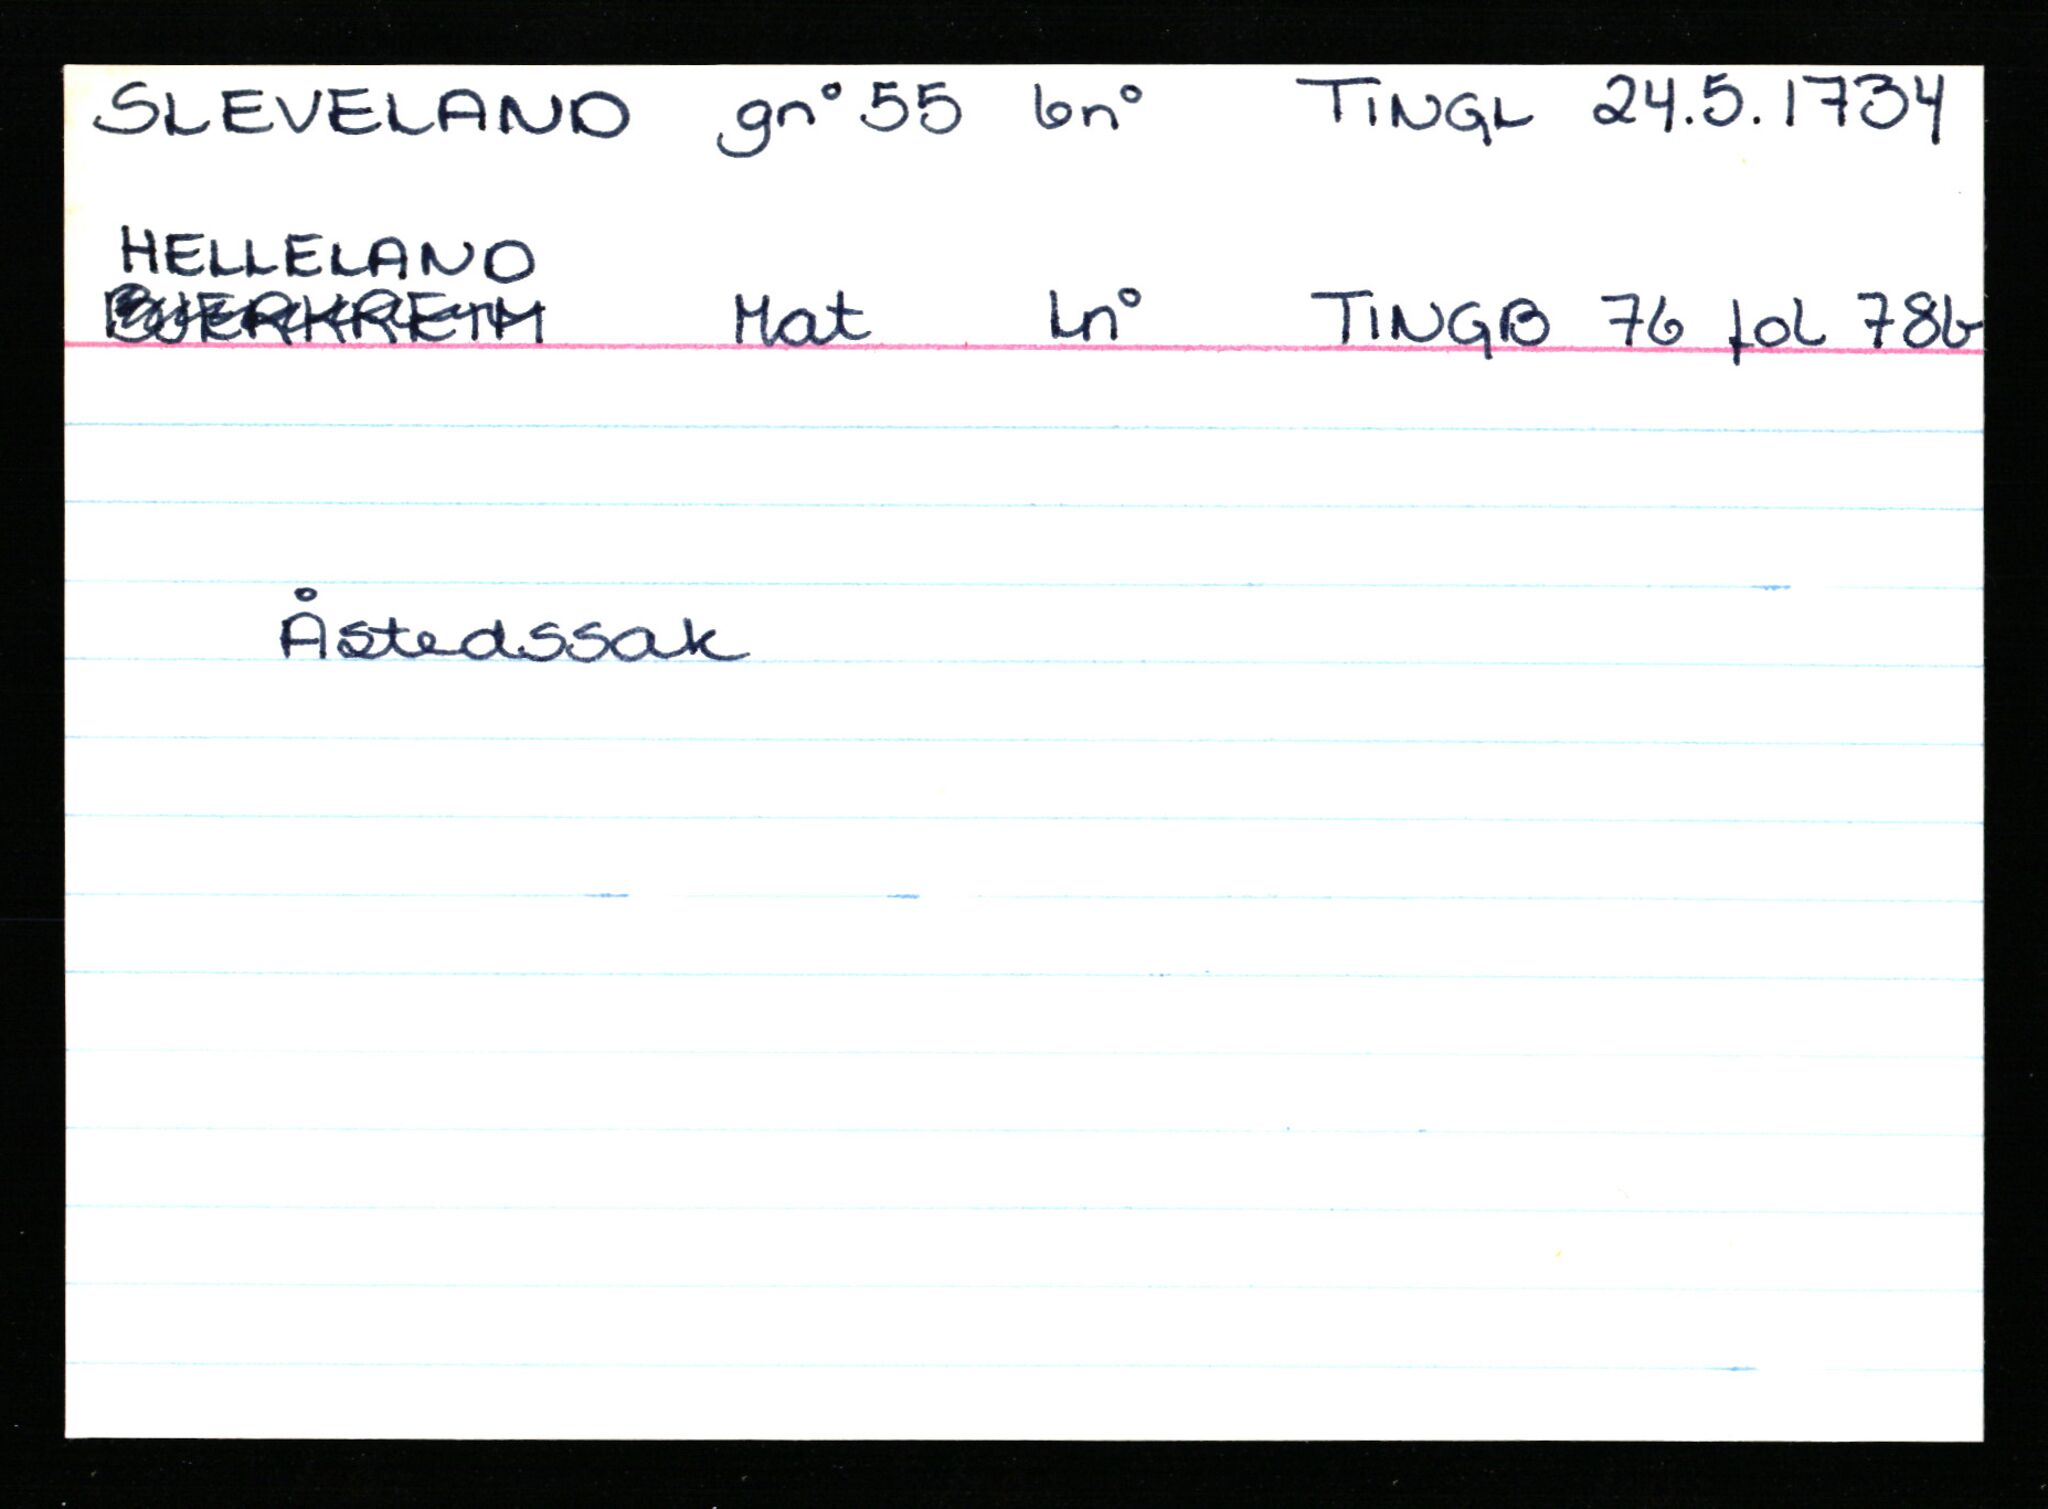 SLEVELAND gn° 55 bn° TINGL 24.5.1734
HELLELAND
BJERKREIM Mat Ln° TINGB 76 fol 78b
Åstedssak